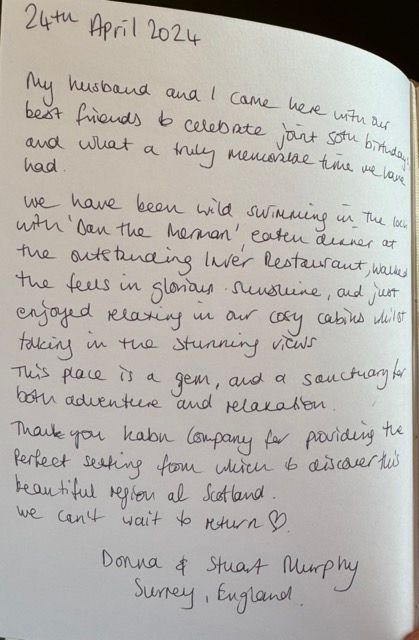 24th April 2024
My husband and I came here with our
best friends to celebrate joint 50th birthdays
and what a truly memorable time we have
had.
We have been wild swimming in the loch
with 'Dan the Merman', eaten dinner at
the outstanding Inver Restaurant, walked
the fells in glorious sunshine, and just
enjoyed relaxing in our cosy cabins whilst
taking in the stunning views
This place is a gem, and a sanctuary for
both adventure and relaxation.
Thank you Kabn Company for providing the
perfect setting from which to discover this
beautiful region of Scotland.
We can't wait to return ♡
Donna & Stuart Murphy
Surrey, England.